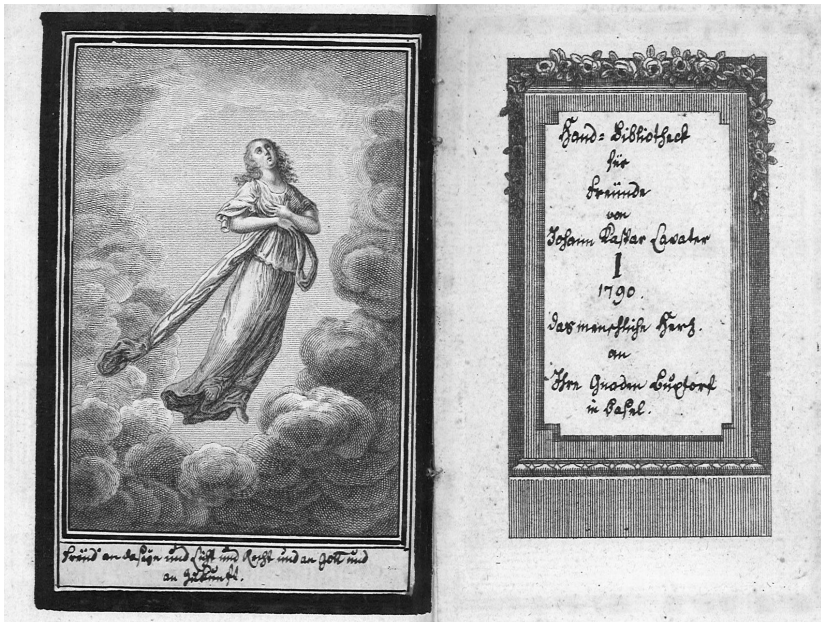 Freüd an daseyn und Licht und Recht und an Gott und
an Zukunft.
Hand-Bibliotheck
für
Freünde
von
Johann Kaspar Lavater
I
1790.
das menschliche Herz.
an
Ihre Gnaden Buxtorf
in Basel.